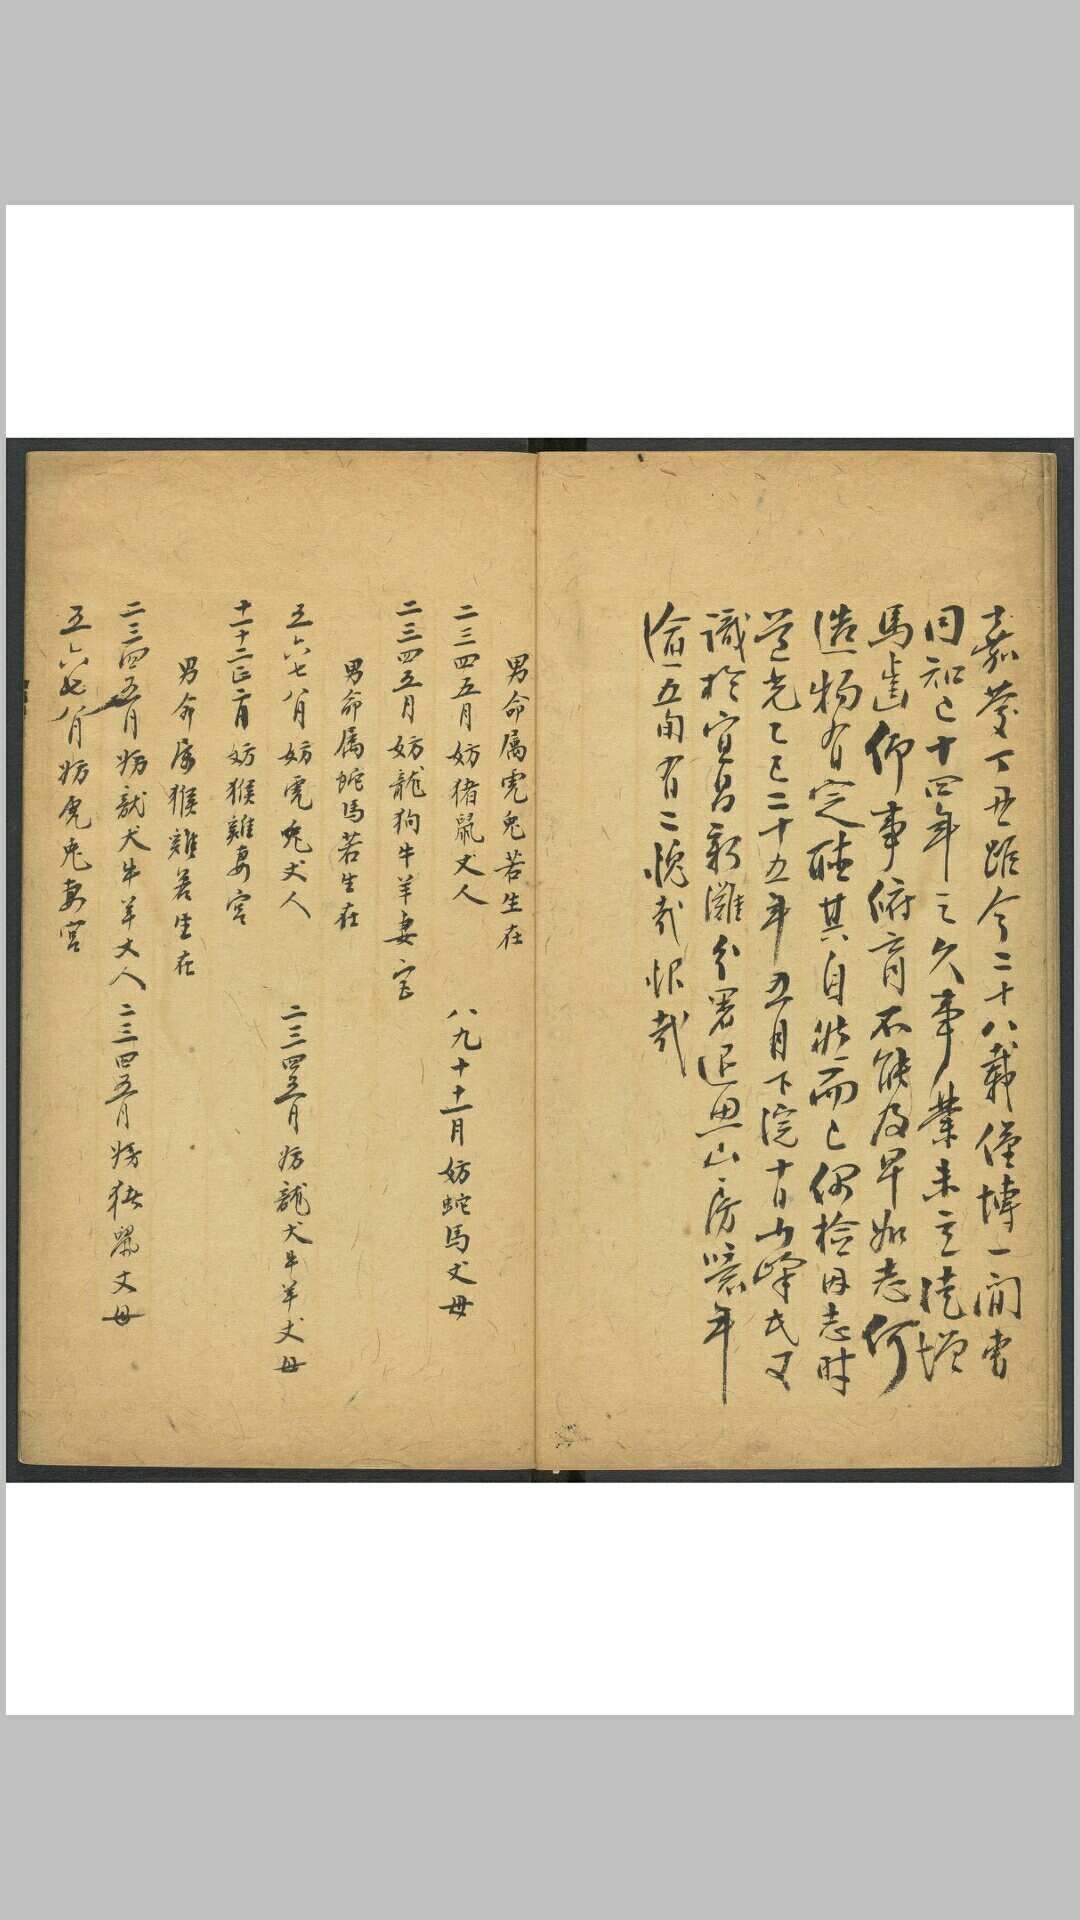 嘉慶丁丑距今二十八載僅博一閒曹
同知已十四年之久事業未立徒增
馬齒仰事俯育不能及早如志何
造物有定聽其自然而已偶檢日志時
道光乙巳二十五年五月下浣十日少峰氏又
識於宜昌新灘分署退思山房時年
逾五旬有二愧哉恨哉
男命屬虎兔若生在
二三四五月妨猪鼠丈人 八九十十一月妨蛇馬丈母
二三四五月妨龍狗牛羊妻宮
男命属蛇馬若生在
五六七八月妨虎兔丈人 二三四五月妨龍犬牛羊丈母
十一十二正二月妨猴雞妻宮
男命属猴雞若生在
二三四五月妨龍犬牛羊丈人 二三四五月妨猪鼠丈母
五六七八月妨虎兔妻宮